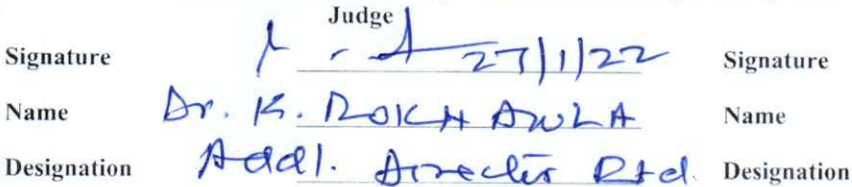 Judge
Signature 27/1/22 Signature
Name Dr. K. ROKHAWLA Name
Designation Addl. Director Rtd. Designation